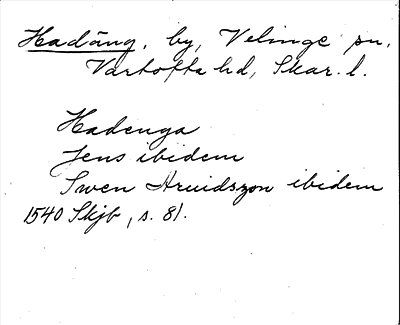 Hadäng, by, Velinge sn,
Vartofta hd, Skar. l.
Hadenga
Jens ibidem
Swen Aruidszon ibidem
1540 Skjb, s. 81.